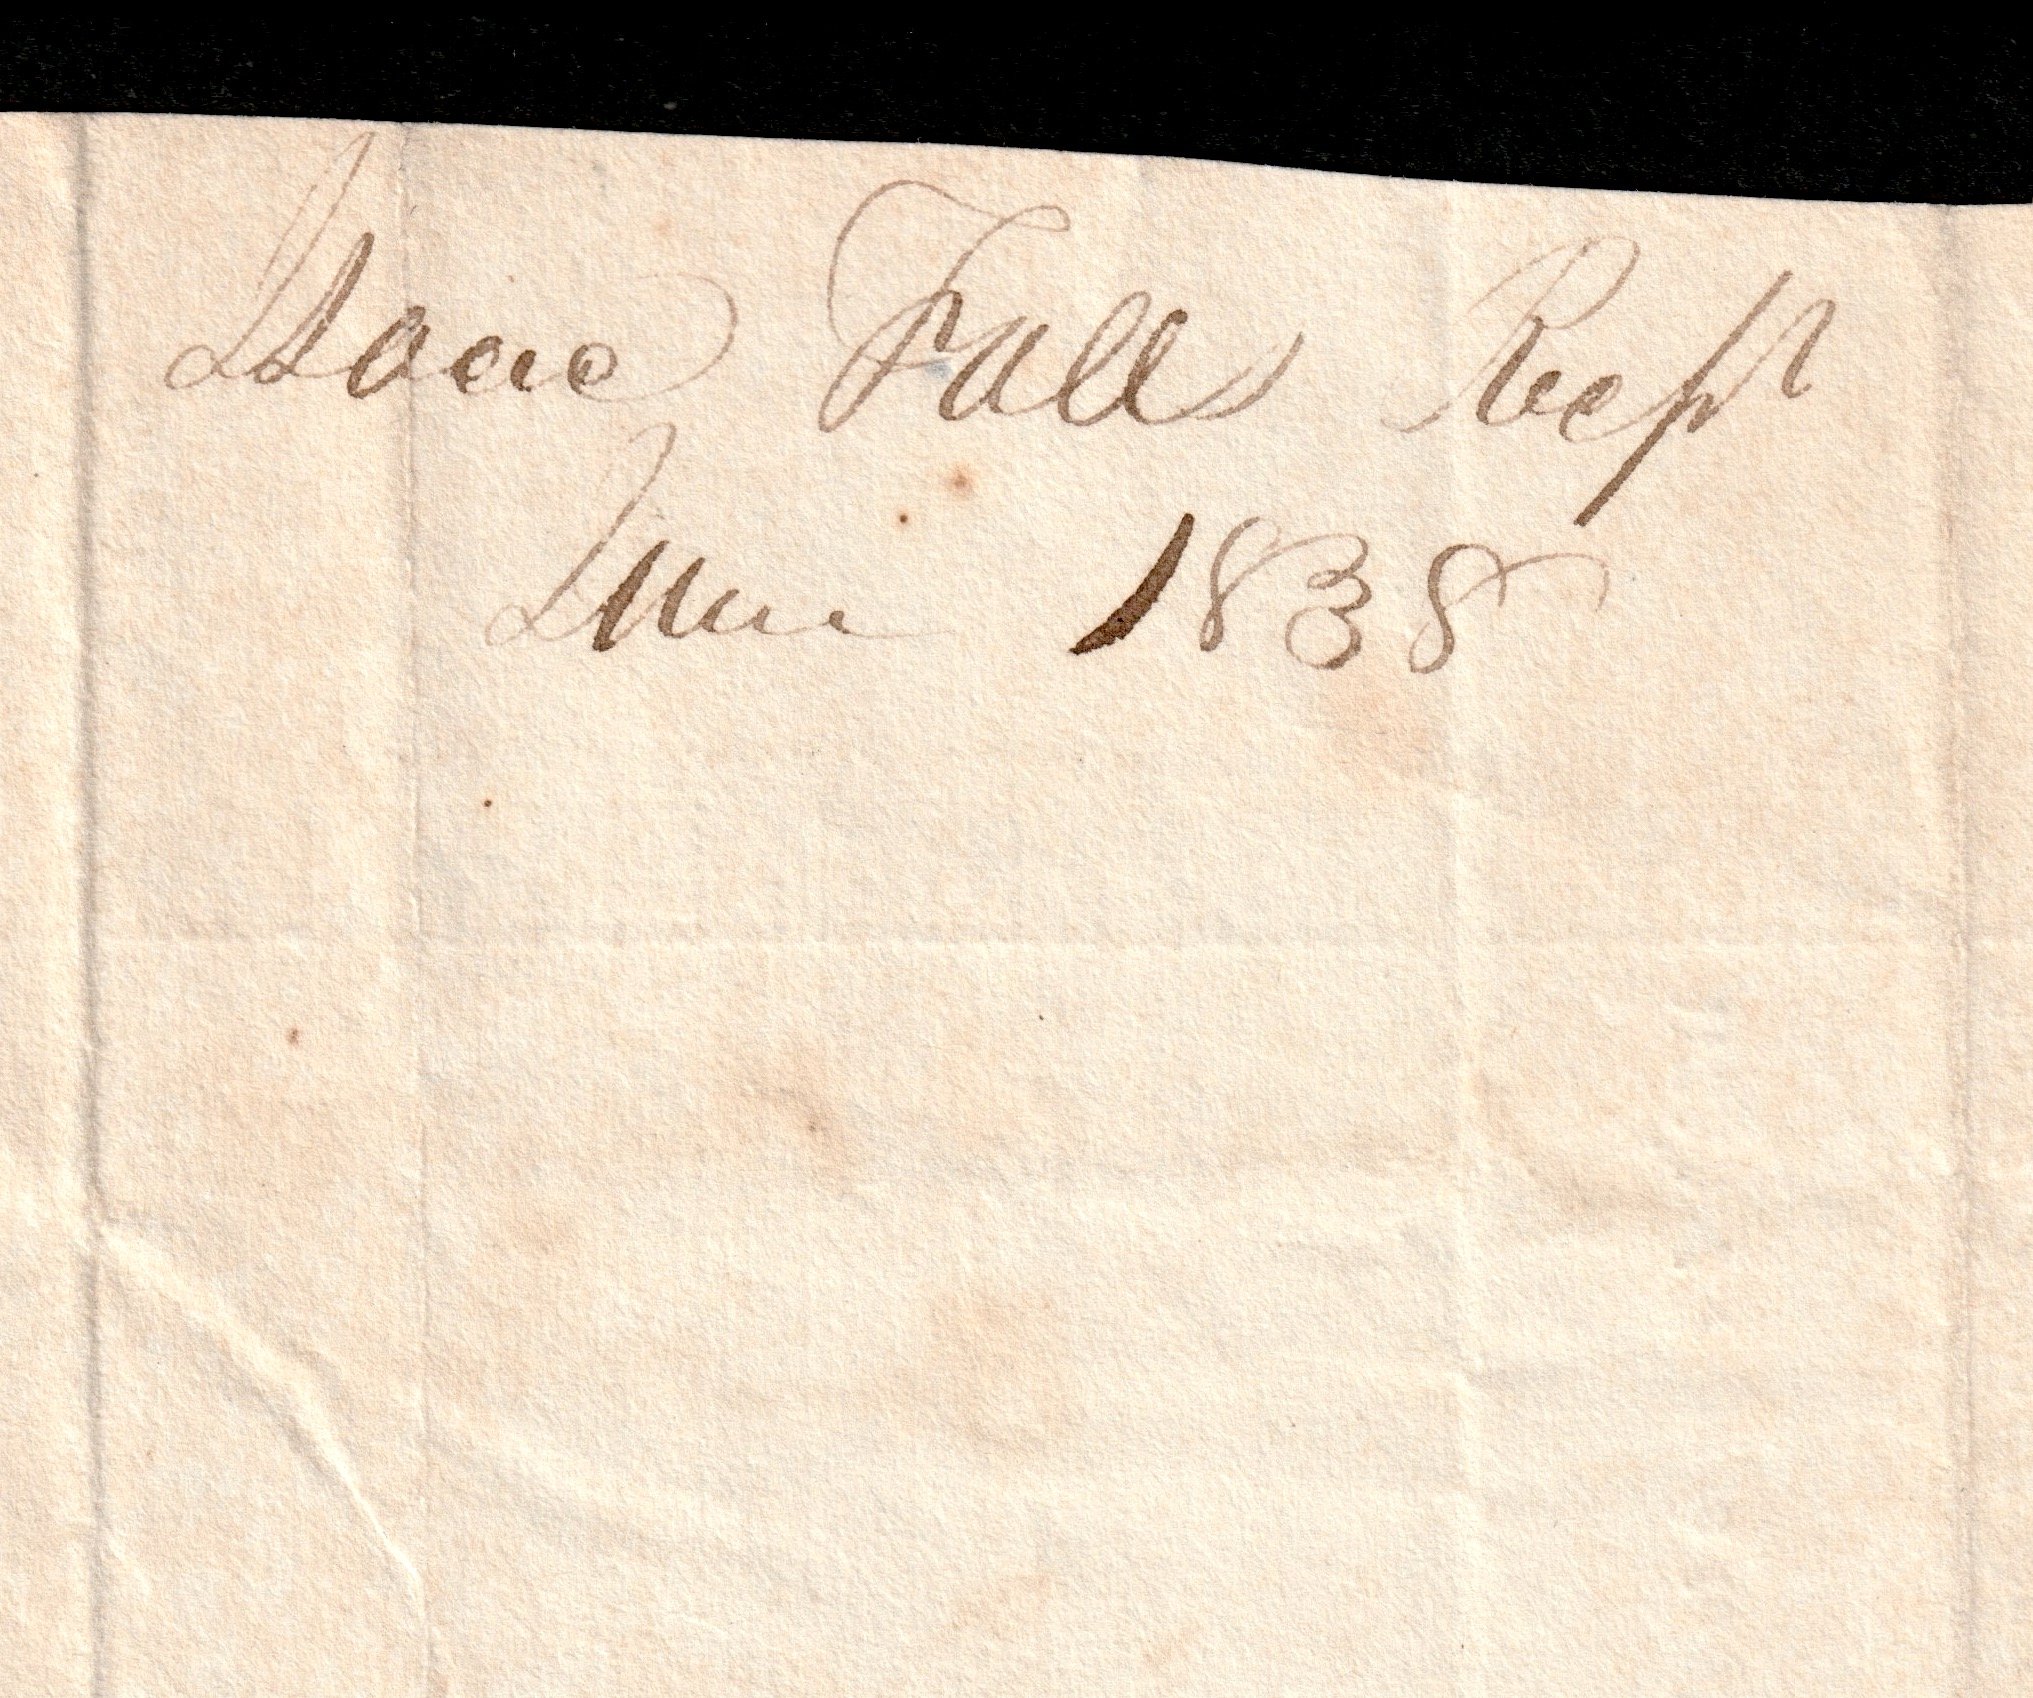 Isaac Falls Recpt
June 1838